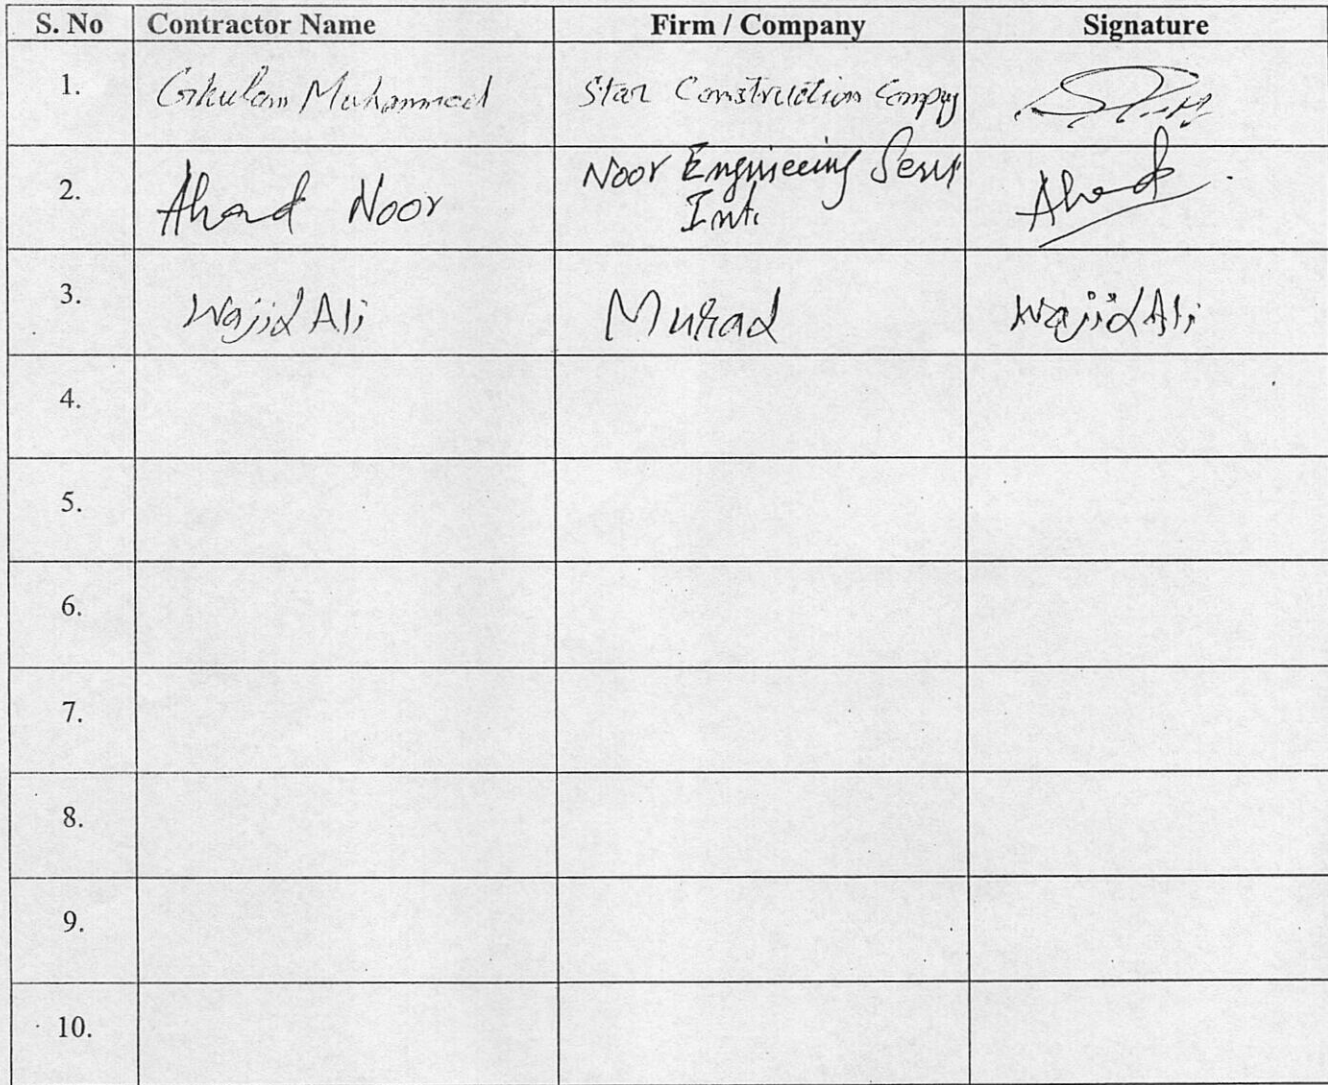 S. No Contractor Name Firm / Company Signature
1. Ghulam Muhammad Star Construction Compny
2. Ahad Noor Noor Engineeing Serv Ahad
Int.
3. Wajid Ali Murad Wajid Ali
4.
5.
6.
7.
8.
9.
10.